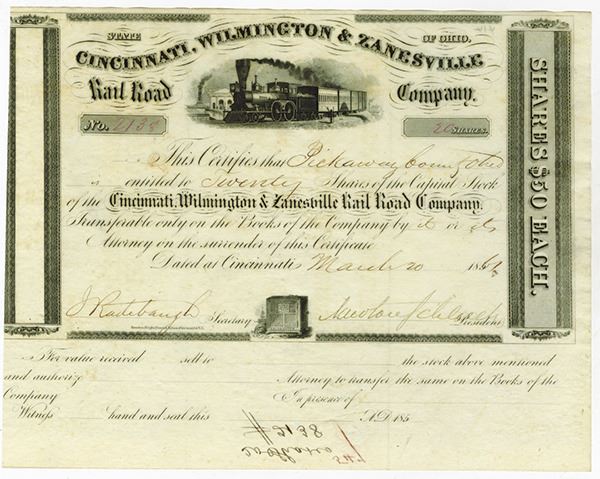 STATE OF OHIO.
CINCINNATI, WILMINGTON & ZANESVILLE
Rail Road Company.
No. 2138
20 SHARES.
This Certifies that Pickaway County Ohio
is entitled to Twenty Shares of the Capital Stock
of the Cincinnati, Wilmington & Zanesville Rail Road Company.
Transferable only on the Books of the Company by it or its
Attorney on the surrender of this Certificate
Dated at Cincinnati March 20 1861
J Radebaugh Secretary President
SHARES $50 EACH.
For value received sell to the stock above mentioned
and authorize Attorney to transfer the same on the Books of the
Company In presence of
Witness hand and seal this A.D. 185
#2138